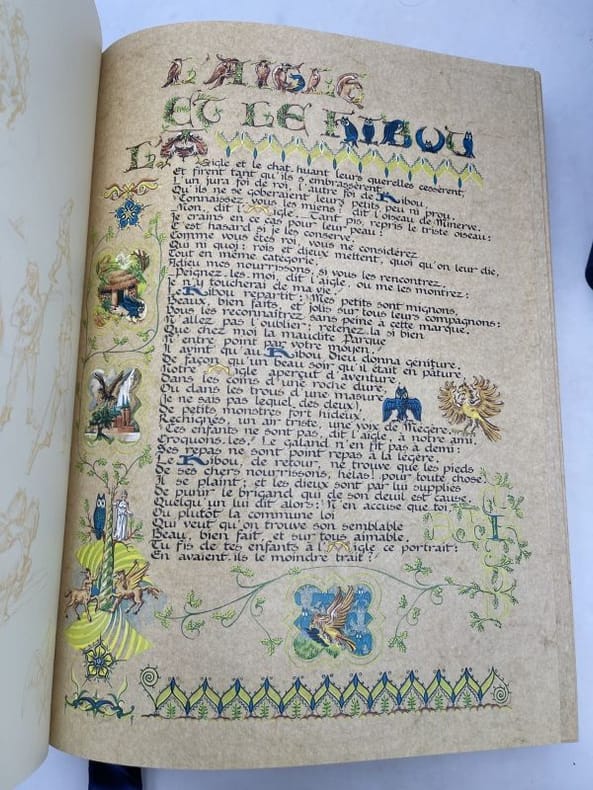 L'AIGLE
ET LE HIBOU
L'Aigle et le chat-huant leurs querelles cessèrent,
Et firent tant qu'ils s'embrassèrent.
L'un jura foi de roi, l'autre foi de Hibou,
Qu'ils ne se goberaient leurs petits peu ni prou.
Connaissez-vous les miens? dit l'oiseau de Minerve.
Non, dit l'Aigle. Tant pis, reprit le triste oiseau:
Je crains en ce cas pour leur peau:
C'est hasard si je les conserve.
Comme vous êtes roi, vous ne considérez
Qui ni quoi: rois et dieux mettent, quoi qu'on leur die,
Tout en même catégorie.
Adieu mes nourrissons, si vous les rencontrez.
Peignez-les-moi, dit l'aigle, ou me les montrez:
Je n'y toucherai de ma vie.
Le Hibou repartit: Mes petits sont mignons,
Beaux, bien faits, et jolis sur tous leurs compagnons:
Vous les reconnaîtrez sans peine à cette marque.
N'allez pas l'oublier; retenez-la si bien
Que chez moi la maudite Parque
N'entre point par votre moyen.
Il avint qu'au Hibou Dieu donna géniture.
De façon qu'un beau soir qu'il était en pâture
Notre Aigle aperçut d'aventure,
Dans les coins d'une roche dure,
Ou dans les trous d'une masure
(Je ne sais pas lequel des deux),
De petits monstres fort hideux,
Rechignés, un air triste, une voix de Mégère.
Ces enfants ne sont pas, dit l'aigle, à notre ami.
Croquons-les! Le galand n'en fit pas à demi:
Ses repas ne sont point repas à la légère.
Le Hibou, de retour, ne trouve que les pieds
De ses chers nourrissons, hélas! pour toute chose.
Il se plaint; et les dieux sont par lui suppliés
De punir le brigand qui de son deuil est cause.
Quelqu'un lui dit alors: N'en accuse que toi,
Ou plutôt la commune loi
Qui veut qu'on trouve son semblable
Beau, bien fait, et sur tous aimable.
Tu fis de tes enfants à l'Aigle ce portrait:
En avaient-ils le moindre trait?